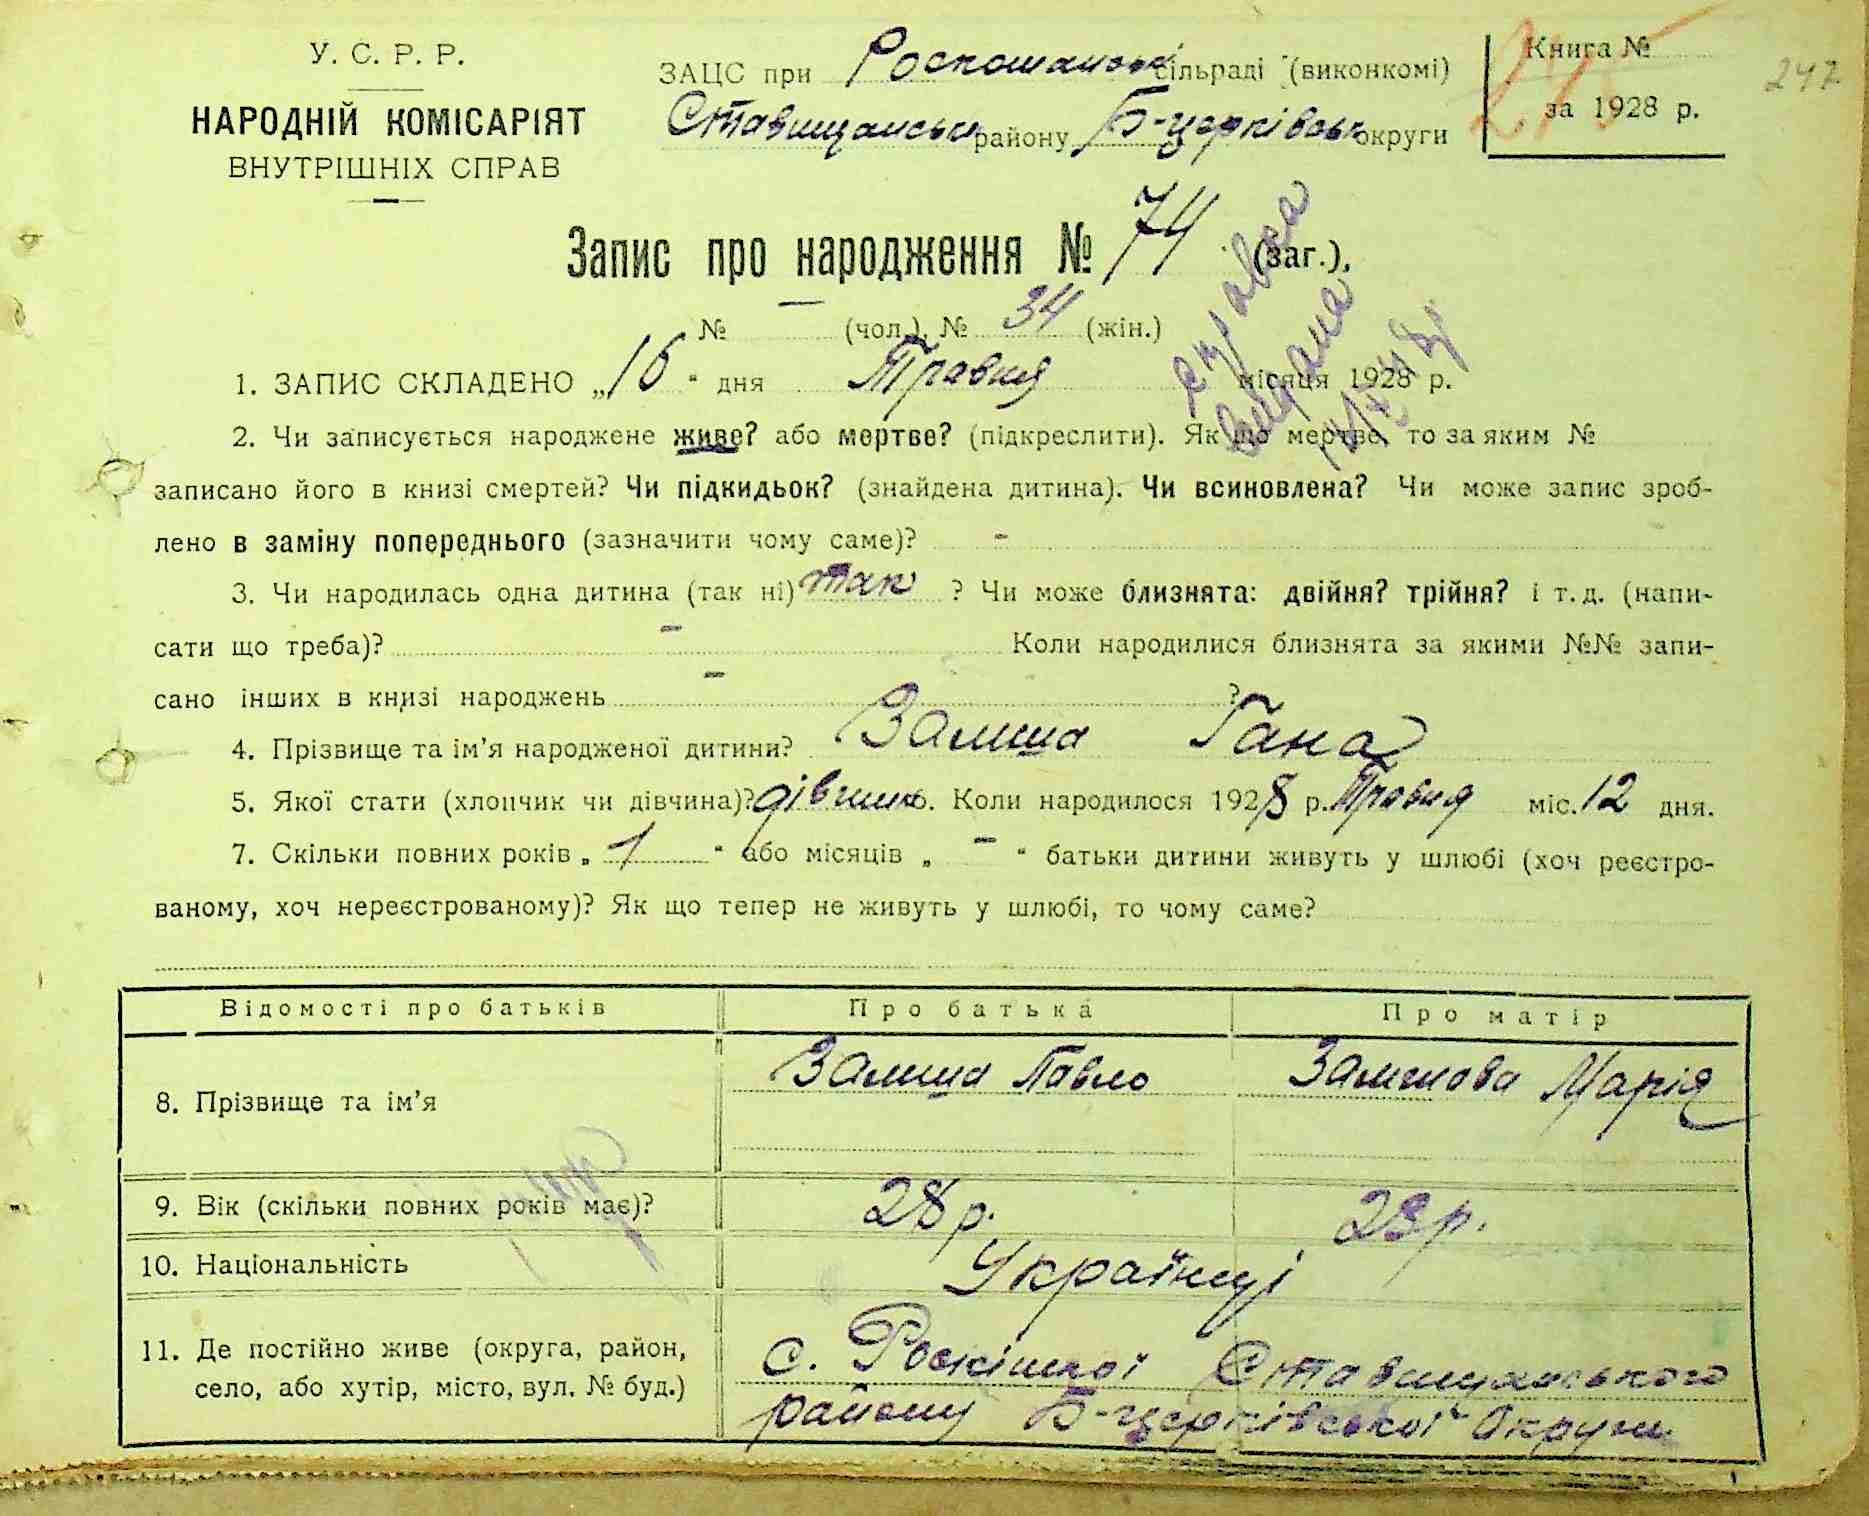 У. С. Р. Р.
НАРОДНІЙ КОМІСАРІЯТ
ВНУТРІШНІХ СПРАВ
ЗАЦС при Роскошанск сільраді (виконкомі)
Ставищанськ району Б-церківськ округи
Книга №
за 1928 р.
247
Запис про народження № 74 (заг.),
№ — (чол.), № 34 (жін.)
1. ЗАПИС СКЛАДЕНО „16“ дня Травня місяця 1928 р.
2. Чи записується народжене живе? або мертве? (підкреслити). Як що мертве, то за яким №
записано його в книзі смертей? Чи підкидьок? (знайдена дитина). Чи всиновлена? Чи може запис зроб-
лено в заміну попереднього (зазначити чому саме)? -
3. Чи народилась одна дитина (так ні) так ? Чи може близнята: двійня? трійня? і т. д. (напи-
сати що треба)? - Коли народилися близнята за якими №№ запи-
сано інших в книзі народжень - ?
4. Прізвище та ім’я народженої дитини? Залиша Гана
5. Якої стати (хлопчик чи дівчина)? дівчина. Коли народилося 1928 р. Травня міс. 12 дня.
7. Скільки повних років „ 1 “ або місяців „ - “ батьки дитини живуть у шлюбі (хоч реєстро-
ваному, хоч нереєстрованому)? Як що тепер не живуть у шлюбі, то чому саме?
Відомості про батьків Про батька Про матір
8. Прізвище та ім’я Залиша Павло Марія
9. Вік (скільки повних років має)? 28 р. 23 р.
10. Національність Українці
11. Де постійно живе (округа, район,
село, або хутір, місто, вул. № буд.)
с. Роскішної Ставищанського
району Б-церківської Округи
справка
видана